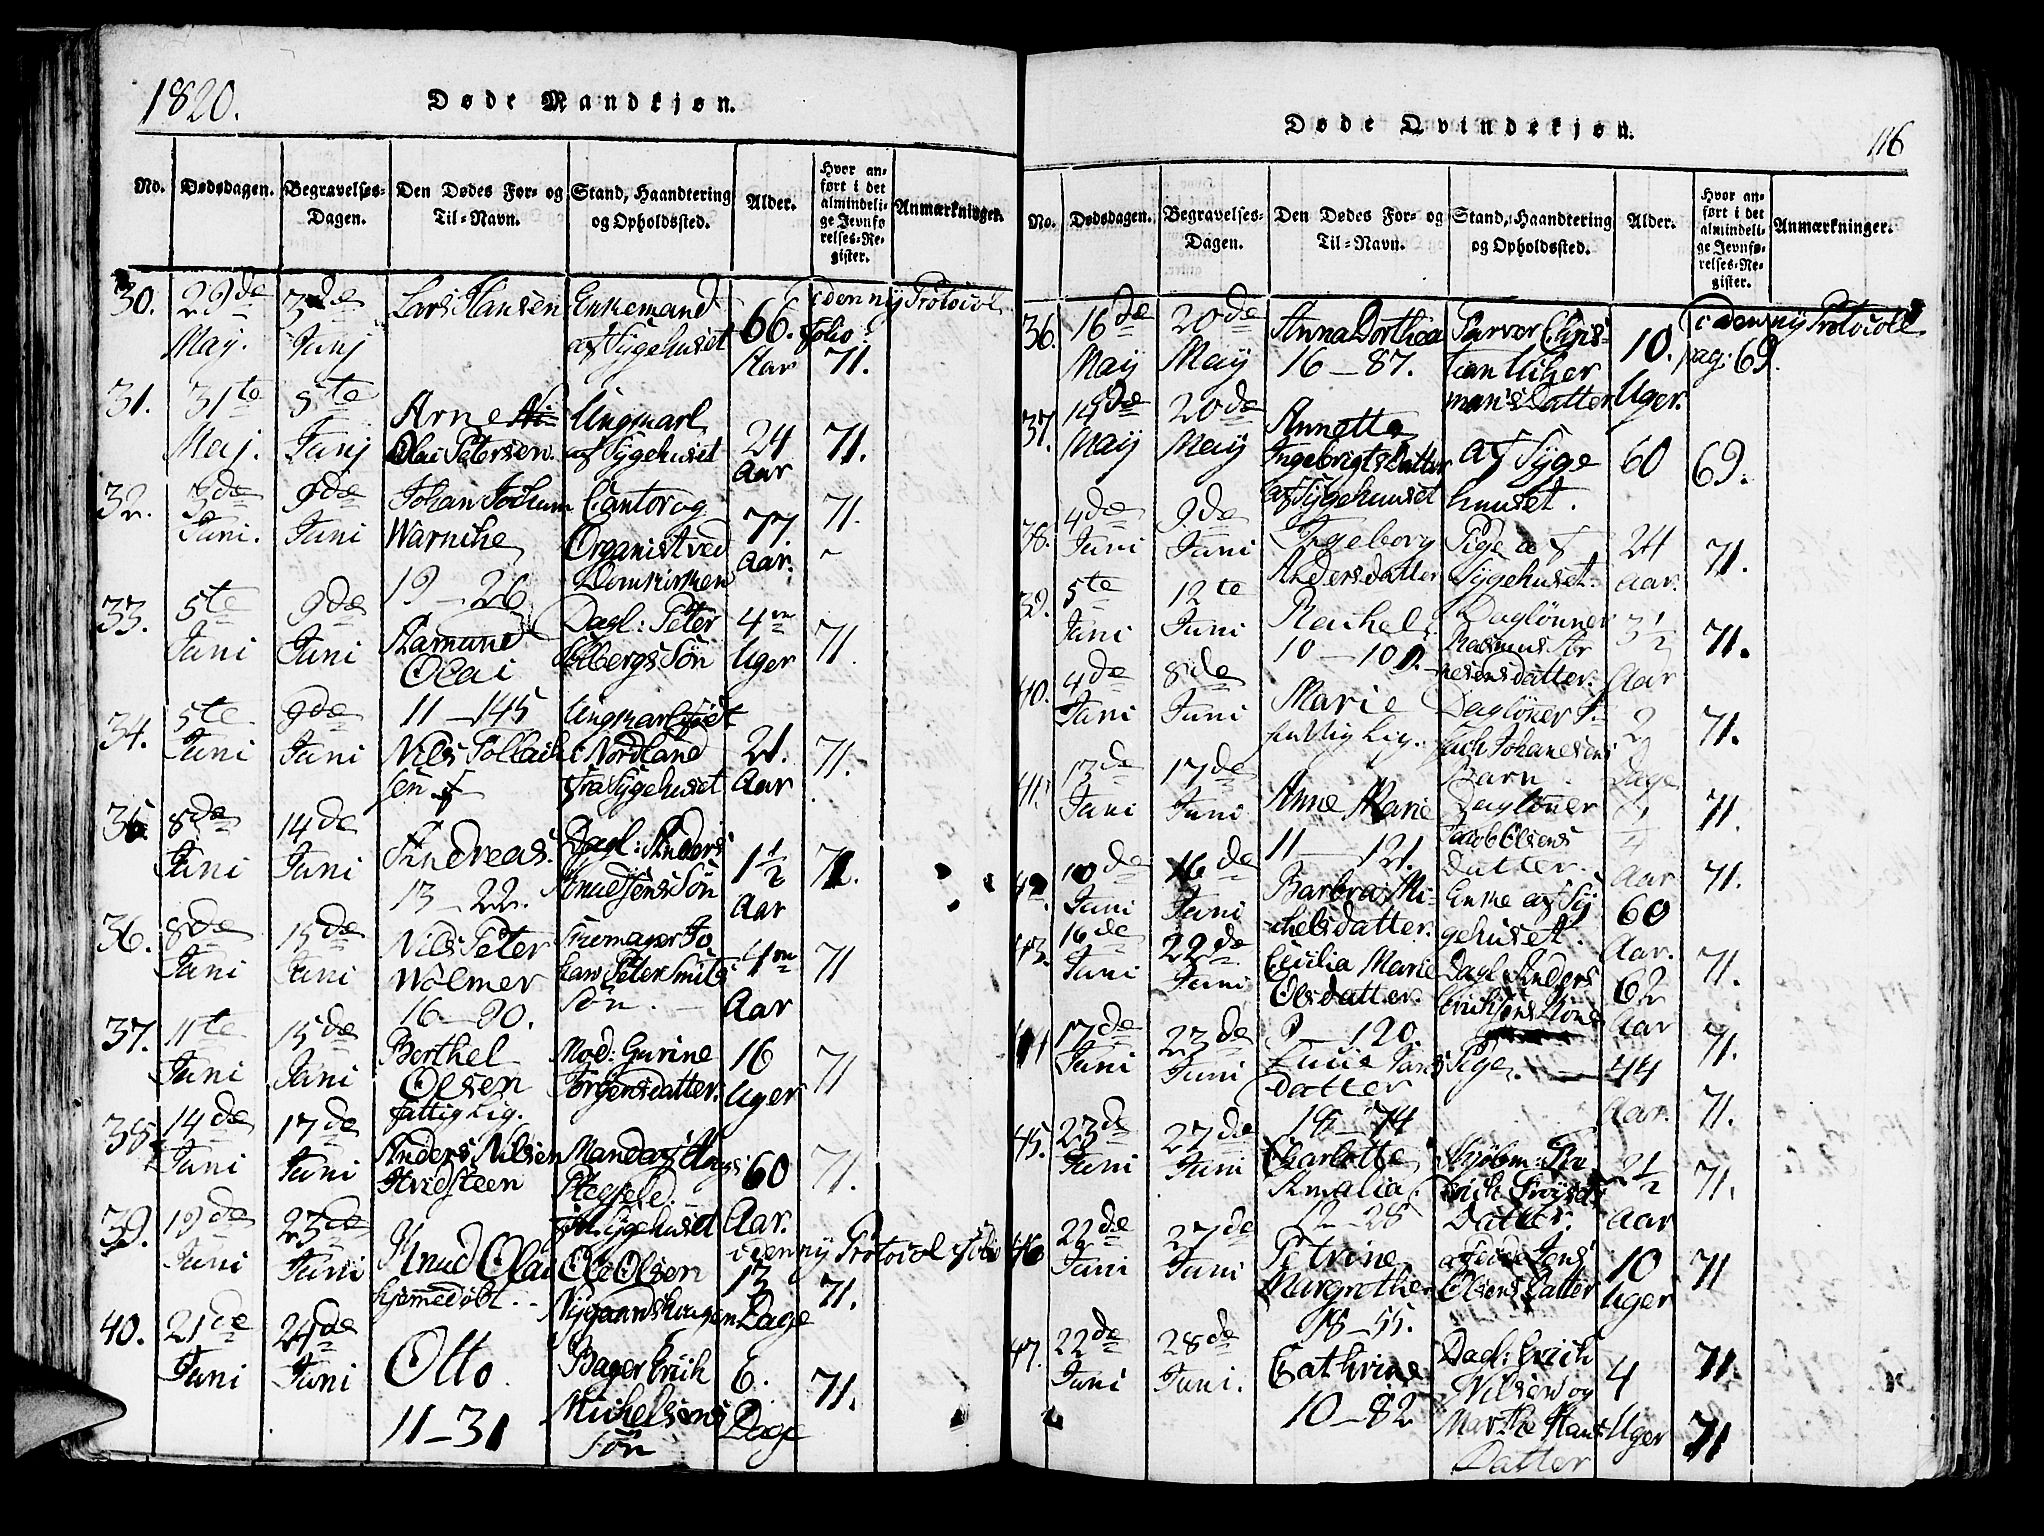 1820.
Døde Mandkjøn.
No.
Dødsdagen.
Begravelses-
Dagen.
Den Dødes For- og
Til-Navn.
Stand, Haandtering
og Opholdssted.
Alder.
Hvor an-
ført i det
almindeli-
ge Jevnfø
relses-Re-
gister.
Anmærkninger.
30.
29de
May.
3de
Junj
Lars Hansen
Enkemand
af Sygehuset
66.
Aar
i den ny Protocol
folio
71.
31.
31te
Maj.
5te
Junj
Arne
Olai Petersen.
Ungkarl
af Sygehuset
24
Aar
71.
32.
3de
Juni.
9de
Juni
Johan Jochum
Warnike
19-26
Cantor og
Organist ved
Domkirken
77.
Aar.
71.
33.
5te
Juni
9de
Juni
Aamund
Olai
11-145
Dagl: Peter
Søn
4
Uger
71.
34.
5te
Juni
9de
Juni
Nils Tollach
sen
Ungkarl
i Nordland
fra Sygehuset
21.
Aar
71.
35
8de
Juni
14de
Juni
Andreas.
13-22.
Dagl: Anders
Knudsens Søn
1½
Aar
71.
36.
8de
Juni
15de
Juni
Nils Peter
Wolmer
16-80.
Peter Smits
Søn.
4
Aar
71
37.
11te
Juni
15de
Juni
Berthel
Olsen
fattig Lig.
Mod: Gurine
Jørgensdatter.
16
Uger
71
38.
14de
Juni
17de
Juni
Anders Nilsen
Hvidsteen
Mand af
fra Sygehuset
60
Aar.
71.
39.
19de
Juni
23de
Juni
Knud Olai
hjemmedøbt.
Ole Olsen
Nygaardshougen
i den ny Protocol folio
13
Dage
71.
40.
21de
Juni
24de
Juni
Otto
11-31
Bager Erich
Michelsens
Søn
6.
Dage
71.
Døde Qvindekjøn.
116
No.
Dødsdagen.
Begravelses-
Dagen.
Den Dødes For- og
Til-Navn.
Stand, Haandtering
og Opholdssted.
Alder.
Hvor an-
ført i det
almindeli-
ge Jevnfø-
relses-Re-
gister.
Anmærkninger.
36.
16de
May
20de
May
Anna Dorthea
16-87.
Farver Chris-
tian
man's Datter
10.
Uger.
i den ny Protocoll
pag: 69.
37.
May
20de
May
Annette
Ingebrigts Datter
af Sygehuuset
af Syge
huuset.
60
69.
38.
4de
Juni
9de
Juni
Ingeborg
Andersdatter
Pige af
Sygehuset.
24
Aar.
71.
39.
5te
Juni
12te
Juni
Rachel
Daglønner
Rasmus Tør
nesens datter.
3½
Aar
71.
40.
4de
Juni
8de
Juni
Marie
fattig Lig.
Dagløner
Johanesens
Barn.
2
Dage
71.
41.
13de
Juni
17de
Juni
Anne Marie
11-121.
Dagløner
Jacob Olsens
Datter.
Aar
71.
42.
10de
Juni
16de
Juni
Barbra Mi-
chelsdatter.
Enke af Sy
gehuset.
60
Aar.
71.
43.
16de
Juni
22de
Juni
Cecilia Marie
Olsdatter.
9-120.
Dagl: Anders
Erichsens Kone
62
Aar
71.
44
17de
Juni
23de
Juni
Lucie Jans
Datter
Pige.
44
Aar.
71.
45.
23de
Juni
27de
Juni
Charlotte
Amalia.
12-28
Datter.
2½
Aar
71.
46
22de
Juni
27de
Juni
Petrine
Margrethe
18-55.
Jens
Olsens Datter
10
Uger
71
47.
22de
Juni
28de
Juni.
Cathrine
10-82
Dagl: Erich
Nilsen og
Marthe Hans
Datter
4
Uger
71